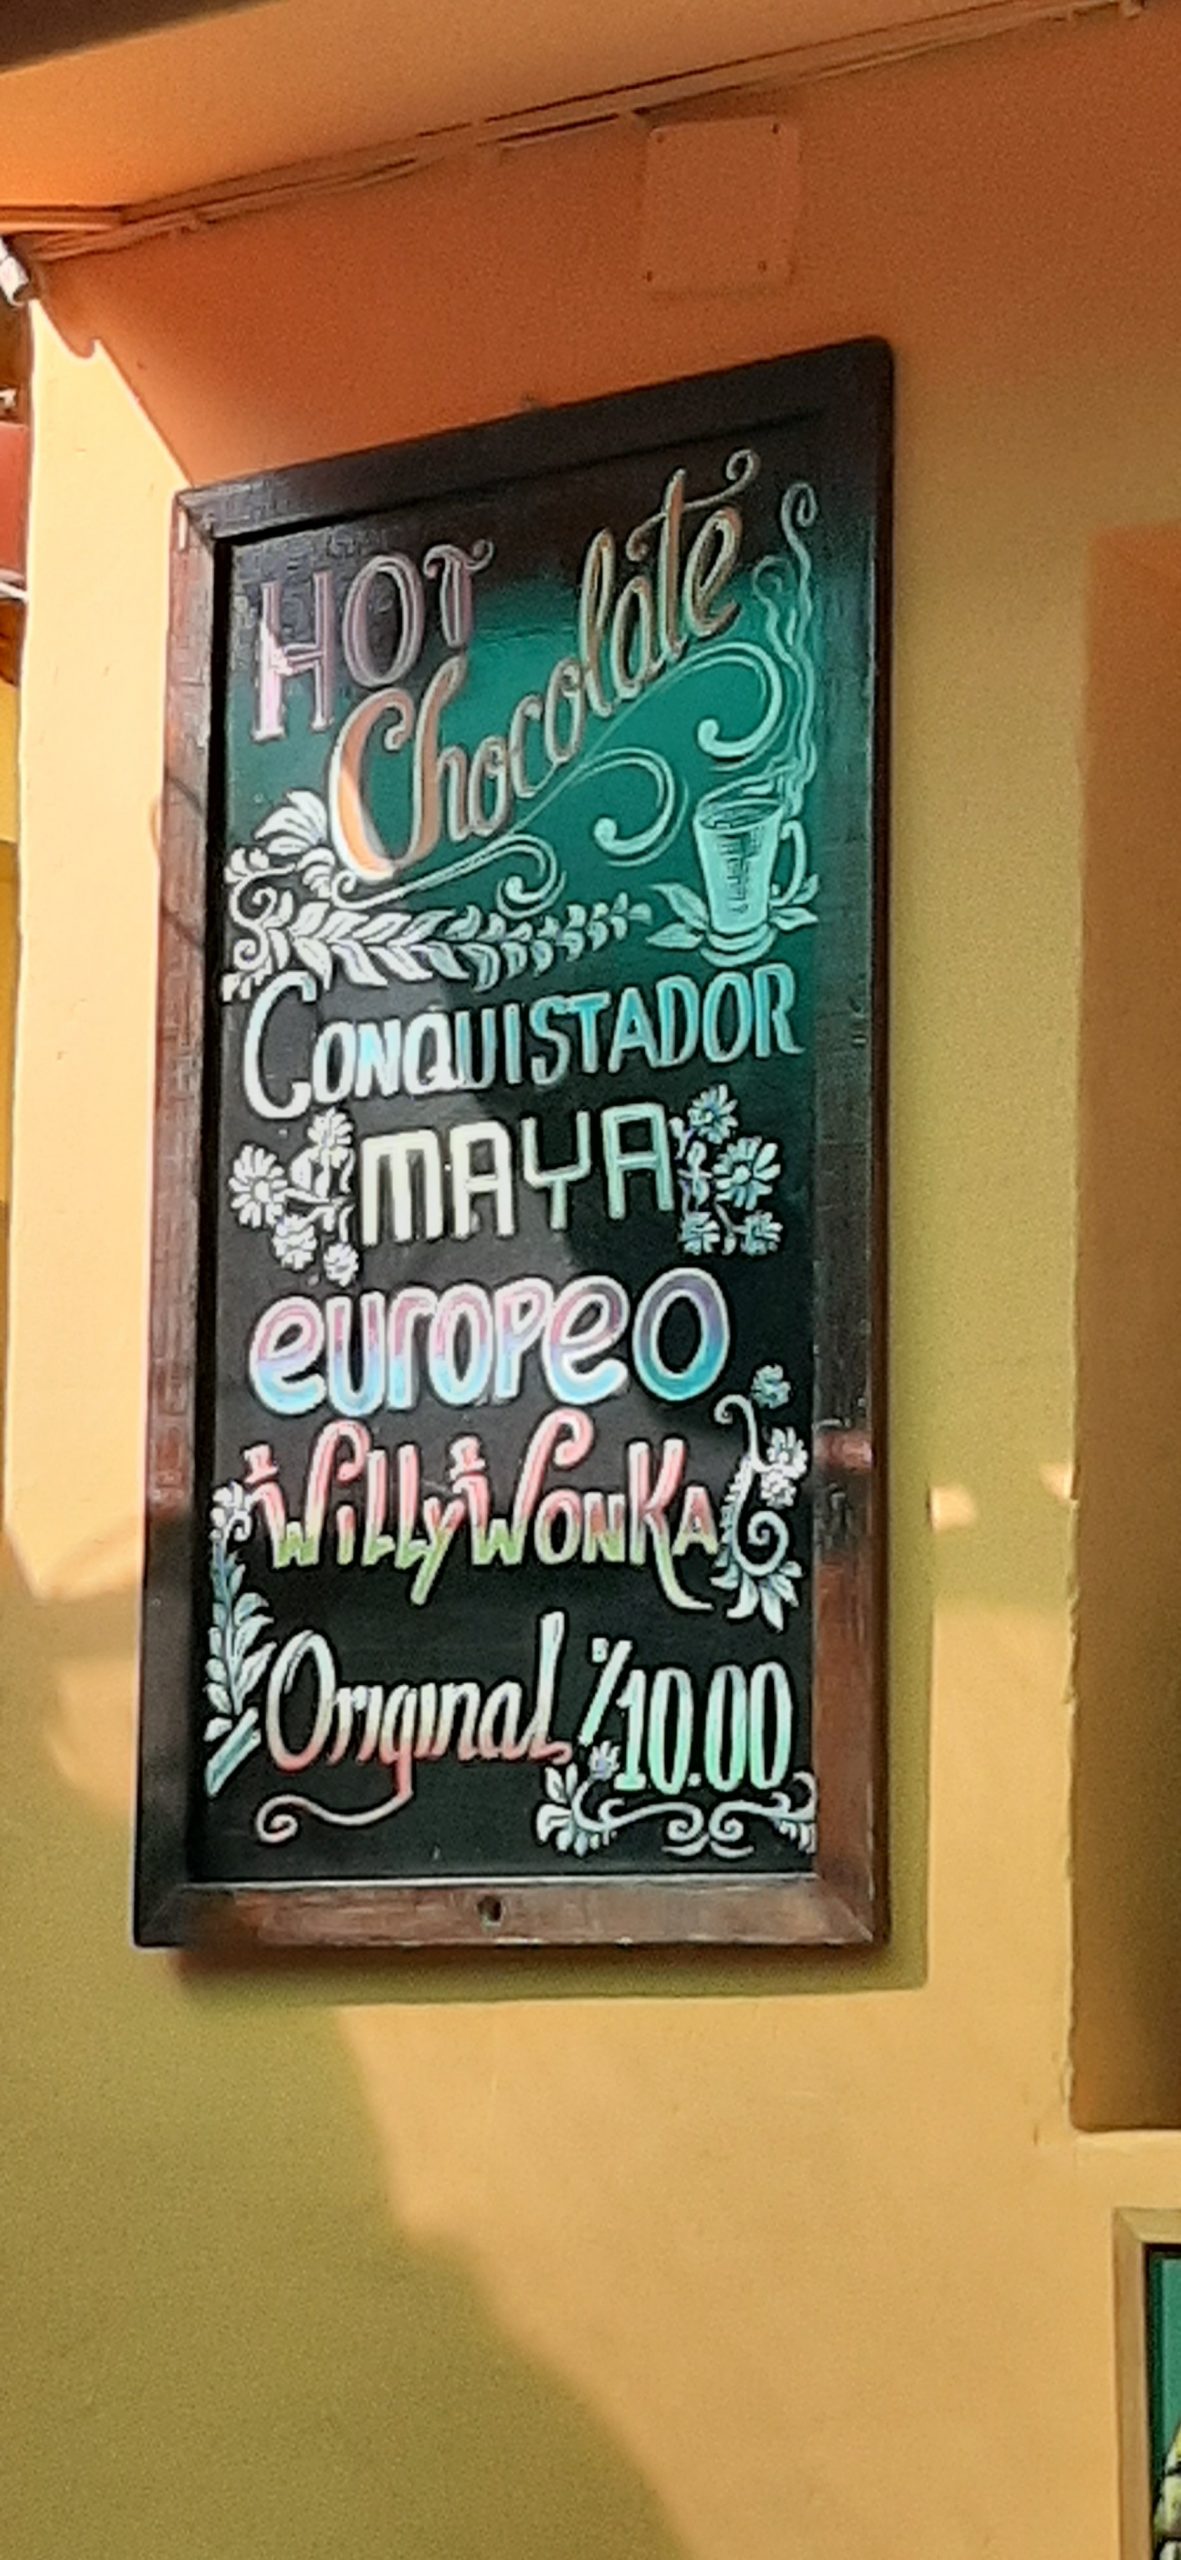 HOT
Chocolate
CONQUISTADOR
MAYA
europeo
Willy Wonka
Original %10.00